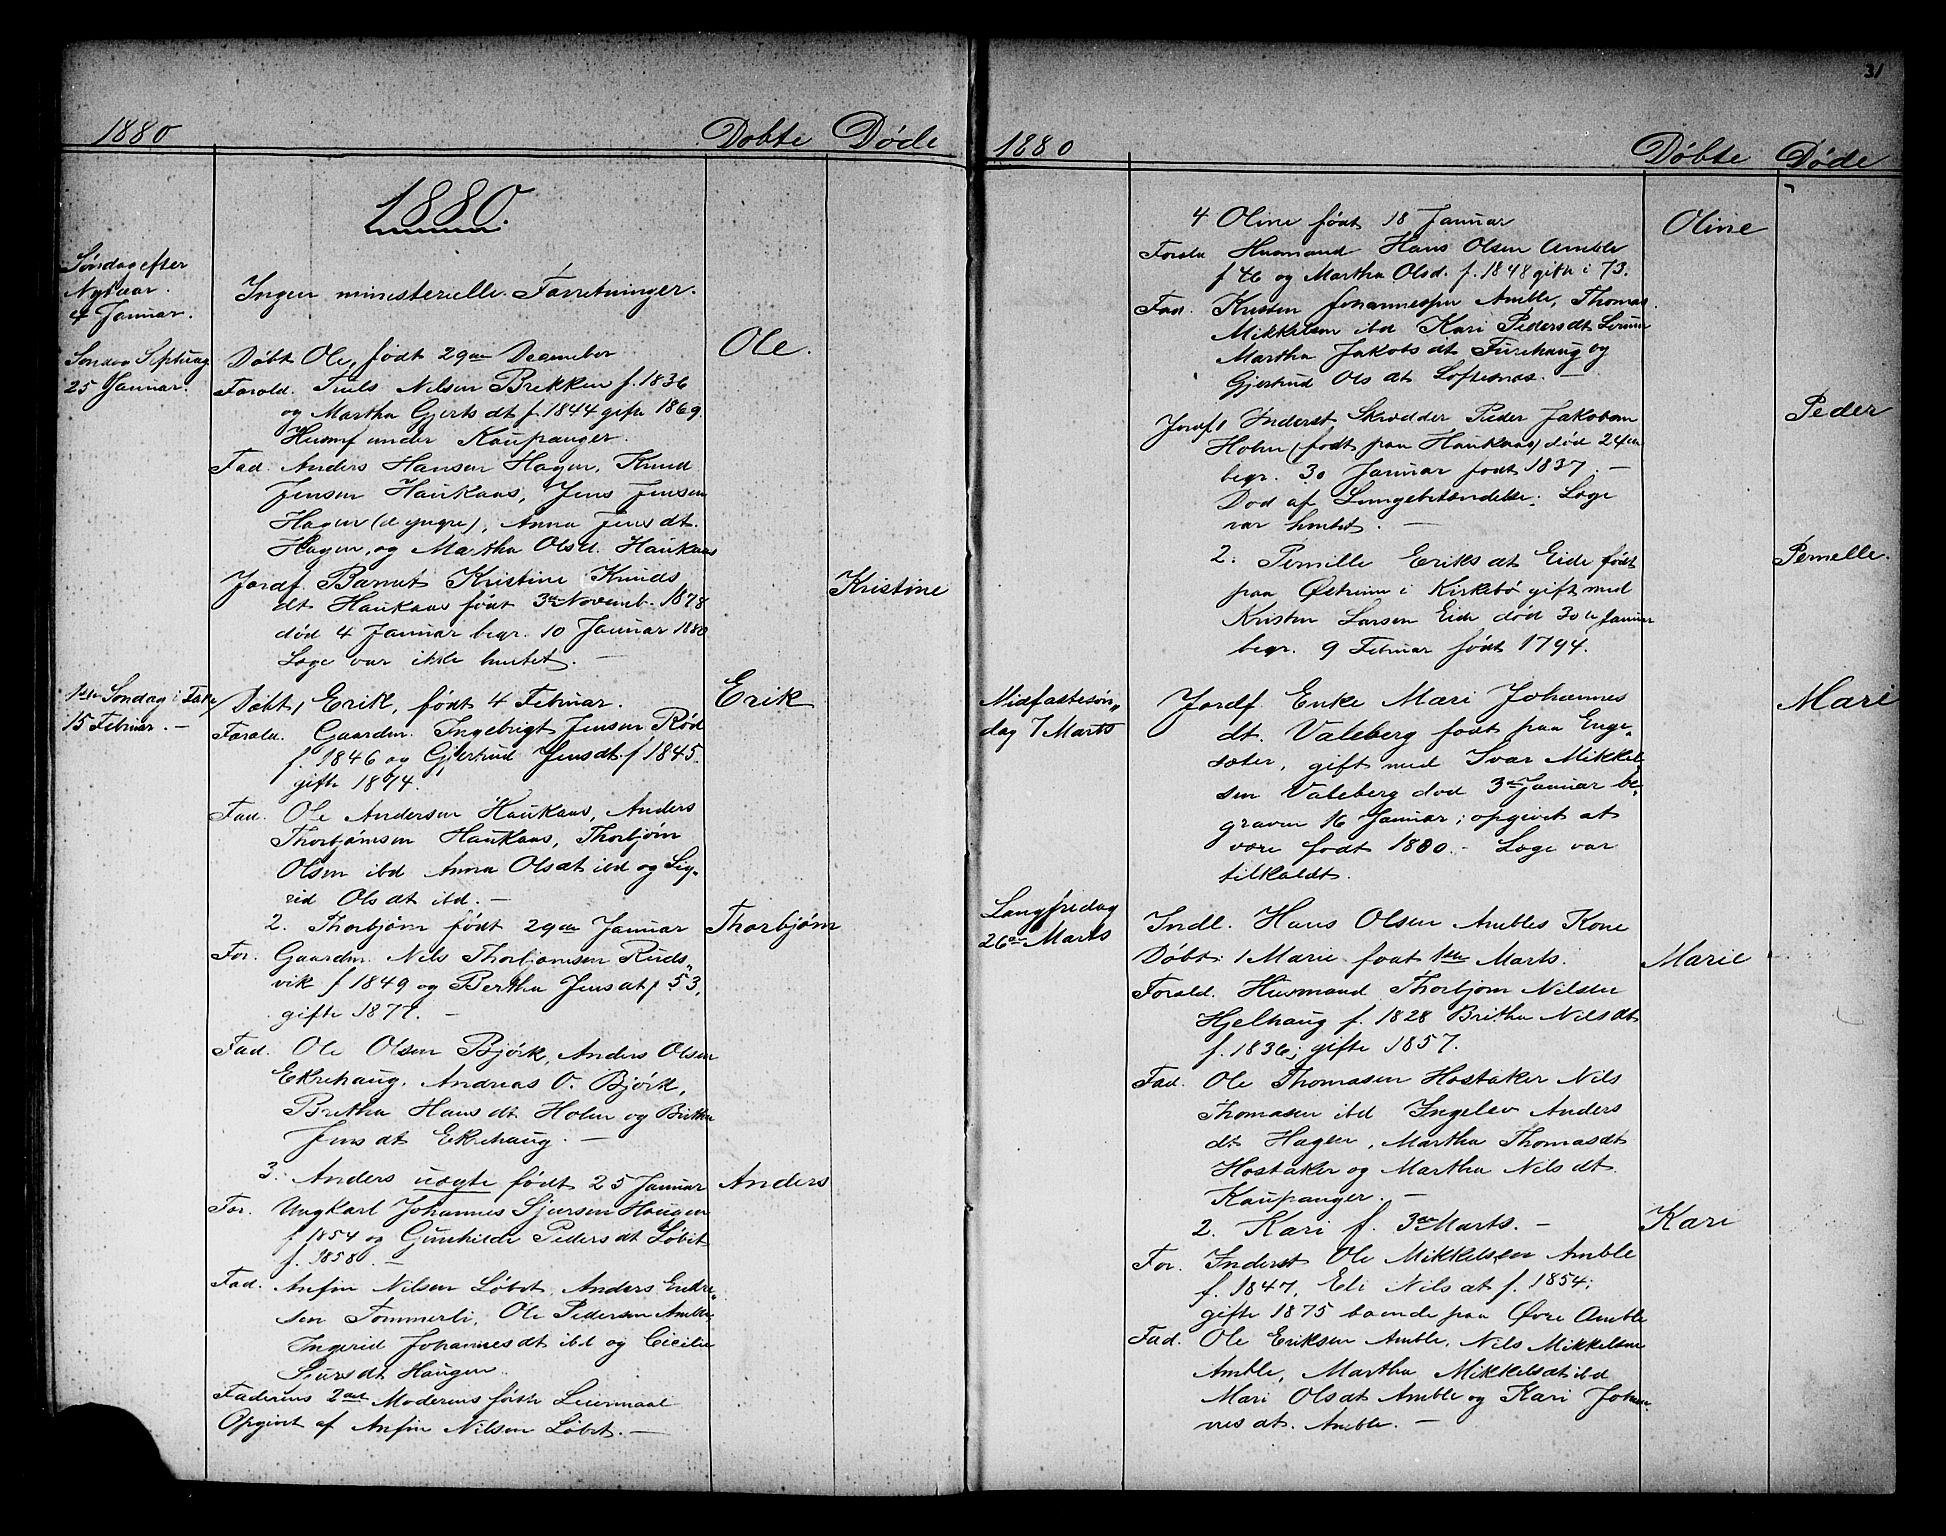 1880 Døbte Døde
1880.
Søndag efter
Nytaar.
4 Januar.
Ingen ministerielle Forretninger.
Søndag Septuag
25 Januar.
Døbt Ole, født 29de December Ole.
Forold. Niels Nilsen Brekken f. 1836
og Martha Gjertsdt f. 1844 gifte 1869.
Husmf under Kaupanger.
Fad. Anders Hansen Hagen, Knud
Jensen Haukaas, Jens Jensen
Hagen (d yngre), Anna Jensdt.
Hagen, og Martha Olsd. Haukaas
Jordf. Barnet Kristine Knuds Kristine
dt Haukaas født 3de Novemb. 1878
død 4 Januar begr. 10 Januar 1880
Læge var ikke hentet. —
1ste Søndag i Faste
15 Februar. —
Døbt 1 Erik, født 4 Februar. Erik
Forold. Gaardm. Ingebrigt Jensen Rød
f. 1846 og Gjertrud Jensdt. f 1845.
gifte 1874.
Fad. Ole Andersen Haukaas, Anders
Thorbjørnsen Haukaas, Thorbjørn
Olsen ibd Anna Olsdt ibd og Sig-
rid Olsdt ibd. —
2. Thorbjørn født 29de Januar Thorbjørn
For. Gaardm. Nils Thorbjørnsen Ruds-
vik f 1849 og Bertha Jensdt f 53,
gifte 1877. —
Fad. Ole Olsen Bjørk, Anders Olsen
Ekrehaug, Andreas O. Bjørk,
Bretha Hansdt Holm og Britha
Jensdt Ekrehaug. —
3. Anders uægte født 25 Januar Anders
For. Ungkarl Johannes Sjursen Haugen
f 1854 og Gunhilde Pedersdt Løbet
f. 1858. —
Fad. Anfin Nilsen Løbet, Anders Endre-
sen Tommerli, Ole Pedersen Amble,
Ingerid Johannesdt ibd og Cicilie
Sjursdt Haugen
Faderens 2det Moderens første Leiermaal
Opgivet af Anfin Nilsen Løbet. —
31
1880 Døbte Døde
4 Oline født 18 Januar Oline
Forold Husmand Hans Olsen Amble
f 46 og Martha Olsd. f. 1848 gifte i 73.
Fad. Kristen Johannessen Amble, Thomas
Mikkelsen ibd Kari Pedersdt Lerum
Martha Jakobsdt Furehaug og
Gjertrud Olsdt Loftesnæs. —
Jordf 1 Inderst, Skrædder Peder Jakobsen Peder
Holm (født paa Haukaas) død 24de
begr. 30 Januar født 1837. —
Død af Lungebetændelse. Læge
var hentet. —
2. Pernille Eriksdt Eide født Pernelle.
paa Østrem i Kirkebø gift med
Kristen Larsen Eide død 30te Januar
begr. 9 Februar født 1794.
Midfastesøn-
dag 7 Marts
Jordf. Enke Mari Johannes Mari
dt. Valeberg født paa Enge-
sæter, gift med Ivar Mikkel-
sen Valeberg død 3de Januar be-
graven 16 Januar; opgivet at
være født 1800. — Læge var
tilkaldt.
Langfredag
26de Marts
Indl. Hans Olsen Ambles Kone
Døbt: 1 Marie født 1ste Marts. Marie
Forold. Husmand Thorbjørn Nilsen
Hjelhaug f. 1828 Britha Nilsdt
f. 1836; gifte 1857.
Fad. Ole Thomasen Hostaker Nils
Thomasen ibd Ingelev Anders
dt Hagen, Martha Thomasdt
Hostaker og Martha Nilsdt.
Kaupanger. —
2. Kari f. 3de Marts. — Kari
For. Inderst Ole Mikkelsen Amble
f. 1847, Eli Nilsdt f. 1854;
gifte 1875 boende paa Øvre Amble
Fad. Ole Eriksen Amble, Nils Mikkelsen
Amble, Martha Mikkelsdt ibd
Mari Olsdt Amble og Kari Johan-
nesdt. Amble. —